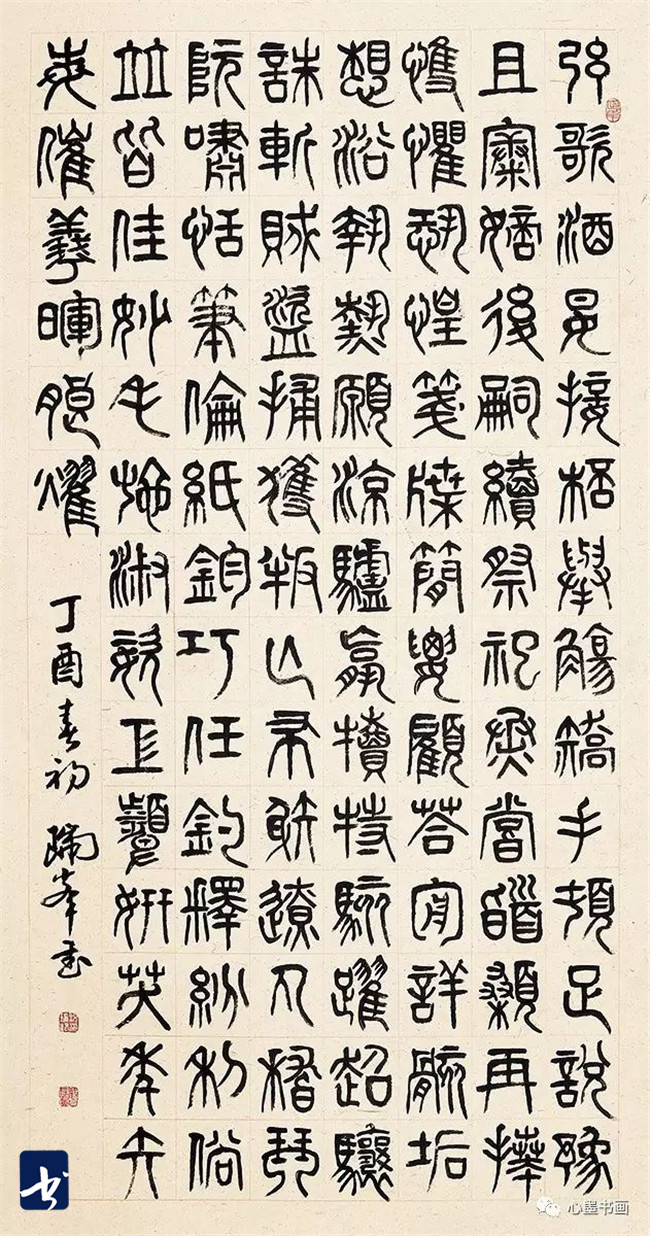 弦歌酒宴接桮舉觴矯手頓足說豫
且康嫡後嗣續祭祀烝嘗稽顙再拜
悚懼恐惶箋牒簡要顧答審詳骸垢
想浴執熱願涼驢騾犢特駭躍超驤
誅斬賊盜捕獲叛亡布射遼丸嵇琴
阮嘯恬筆倫紙鈞巧任釣釋紛利俗
竝皆佳妙毛施淑姿工顰妍笑年矢
每催羲暉朗燿
丁酉春初 瑞峯書
书
心墨书画